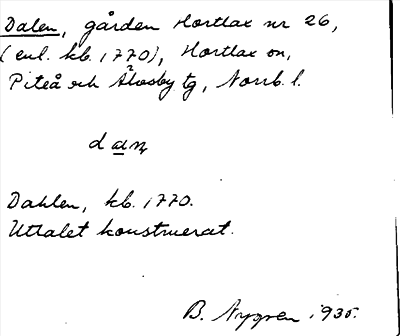 Dalen, gården Hortlax nr 26,
(enl. kb. 1770), Hortlax sn,
Piteå och Älvsby tg, Norrb. l.
Dahlen, kb. 1770.
Uttalet konstruerat.
B. Nygren 1935.